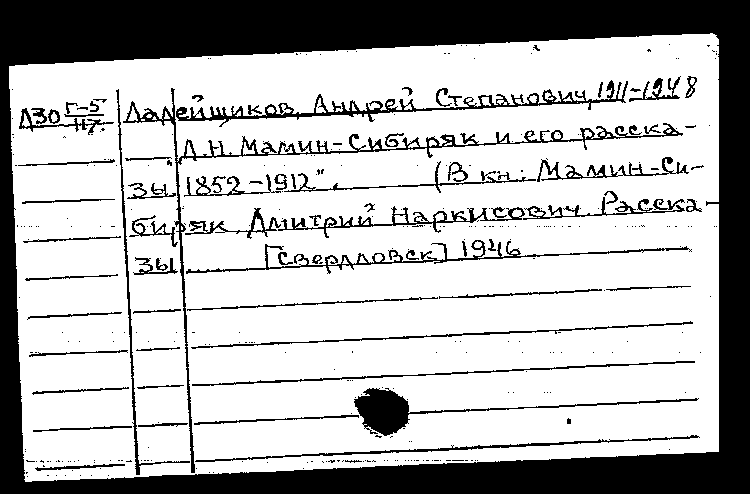 ДЗО Г-5/117. Ладейщиков, Андрей Степанович, 1911-1948
Д.Н. Мамин-Сибиряк и его расска-
зы 1852-1912". (В кн: Мамин-Си-
биряк Дмитрий Наркисович Расска-
зы. [Свердловск] 1946